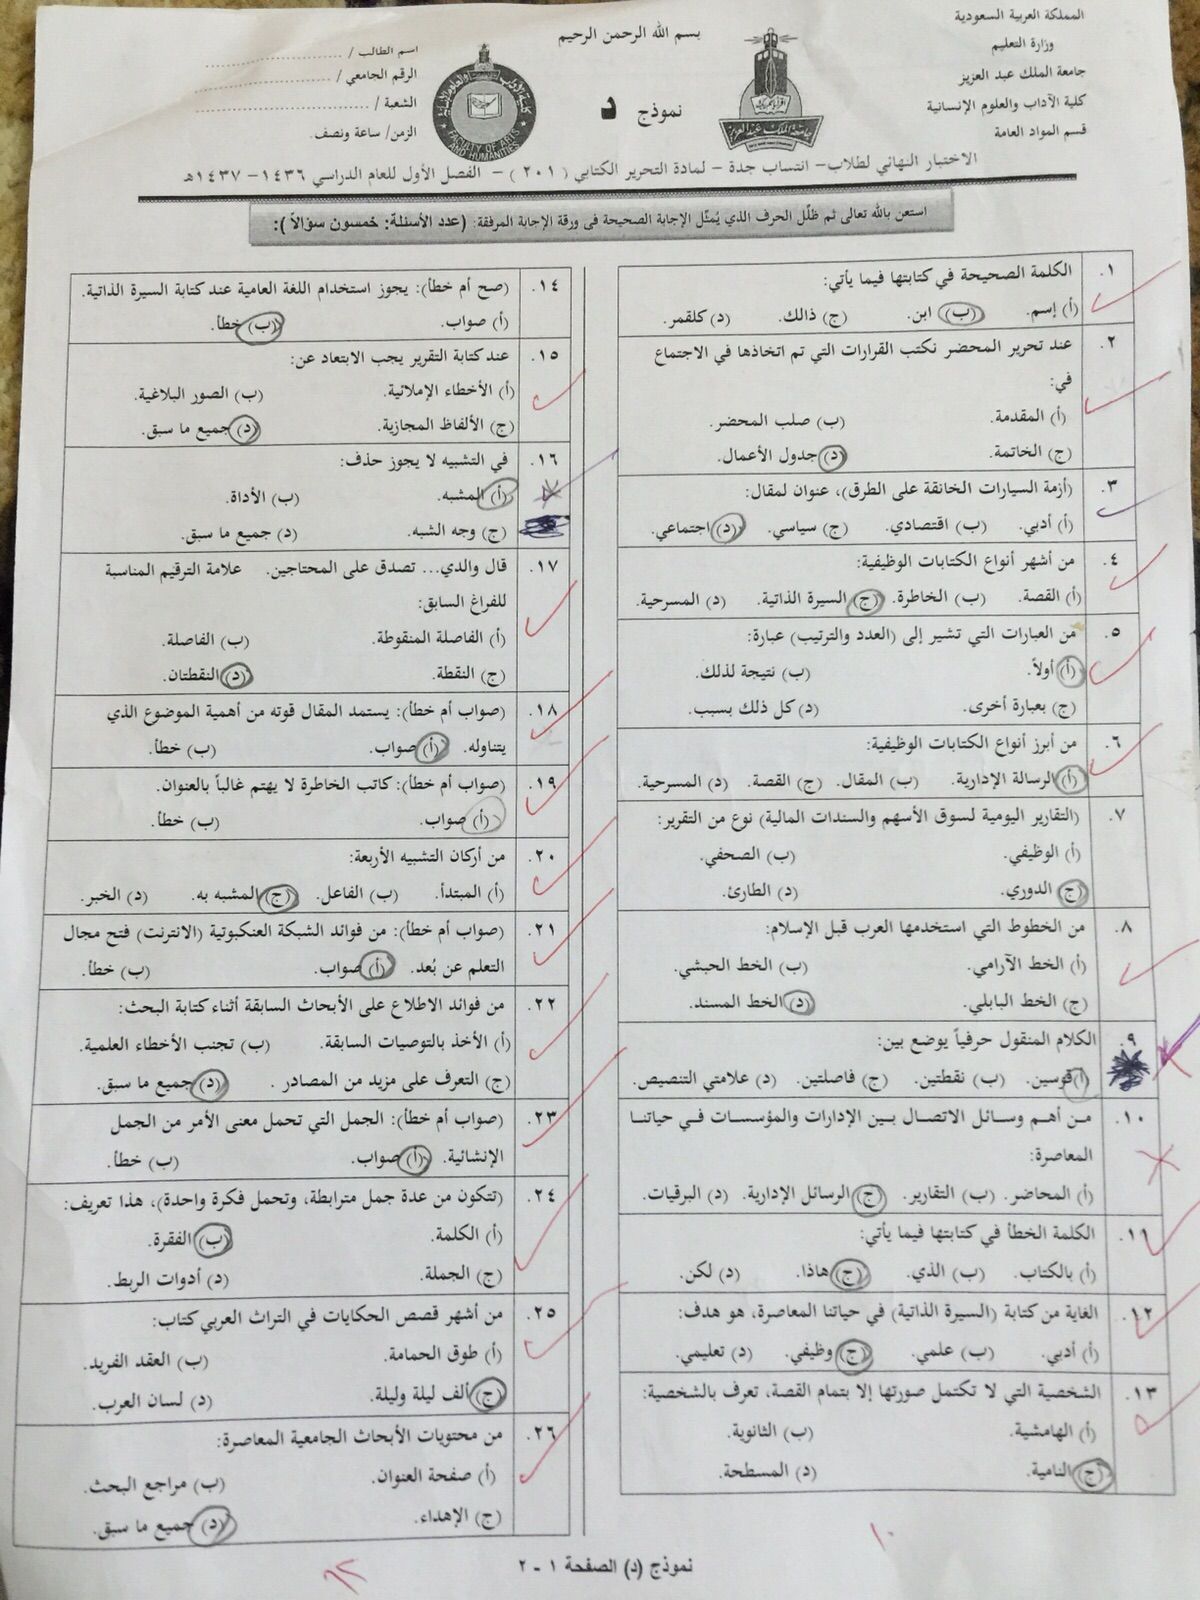 المملكة العربية السعودية
وزارة التعليم
جامعة الملك عبد العزيز
كلية الآداب والعلوم الإنسانية
قسم المواد العامة
بسم الله الرحمن الرحيم
نموذج د
اسم الطالب / ....................
الرقم الجامعي / ....................
الشعبة / ....................
الزمن/ ساعة ونصف.
جامعة الملك عبد العزيز
FACULTY OF ARTS
AND HUMANITIES
الاختبار النهائي لطلاب- انتساب جدة - لمادة التحرير الكتابي ( ٢٠١ ) - الفصل الأول للعام الدراسي ١٤٣٦- ١٤٣٧هـ
استعن بالله تعالى ثم ظلّل الحرف الذي يُمثّل الإجابة الصحيحة في ورقة الإجابة المرفقة: (عدد الأسئلة: خمسون سؤالاً ):
١. الكلمة الصحيحة في كتابتها فيما يأتي:
(أ) إسم. (ب) ابن. (ج) ذالك. (د) كلقمر.
٢. عند تحرير المحضر نكتب القرارات التي تم اتخاذها في الاجتماع
في:
(أ) المقدمة. (ب) صلب المحضر.
(ج) الخاتمة. (د) جدول الأعمال.
٣. (أزمة السيارات الخانقة على الطرق)، عنوان لمقال:
(أ) أدبي. (ب) اقتصادي. (ج) سياسي. (د) اجتماعي.
٤. من أشهر أنواع الكتابات الوظيفية:
(أ) القصة. (ب) الخاطرة. (ج) السيرة الذاتية. (د) المسرحية.
٥. من العبارات التي تشير إلى (العدد والترتيب) عبارة:
(أ) أولاً. (ب) نتيجة لذلك.
(ج) بعبارة أخرى. (د) كل ذلك بسبب.
٦. من أبرز أنواع الكتابات الوظيفية:
(أ) الرسالة الإدارية. (ب) المقال. (ج) القصة. (د) المسرحية.
٧. (التقارير اليومية لسوق الأسهم والسندات المالية) نوع من التقرير:
(أ) الوظيفي. (ب) الصحفي.
(ج) الدوري. (د) الطارئ.
٨. من الخطوط التي استخدمها العرب قبل الإسلام:
(أ) الخط الآرامي. (ب) الخط الحبشي.
(ج) الخط البابلي. (د) الخط المسند.
٩. الكلام المنقول حرفياً يوضع بين:
(أ) قوسين. (ب) نقطتين. (ج) فاصلتين. (د) علامتي التنصيص.
١٠. من أهم وسائل الاتصال بين الإدارات والمؤسسات في حياتنا
المعاصرة:
(أ) المحاضر. (ب) التقارير. (ج) الرسائل الإدارية. (د) البرقيات.
١١. الكلمة الخطأ في كتابتها فيما يأتي:
(أ) بالكتاب. (ب) الذي. (ج) هاذا. (د) لكن.
١٢. الغاية من كتابة (السيرة الذاتية) في حياتنا المعاصرة، هو هدف:
(أ) أدبي. (ب) علمي. (ج) وظيفي. (د) تعليمي.
١٣. الشخصية التي لا تكتمل صورتها إلا بتمام القصة، تعرف بالشخصية:
(أ) الهامشية. (ب) الثانوية.
(ج) النامية. (د) المسطحة.
١٤. (صح أم خطأ): يجوز استخدام اللغة العامية عند كتابة السيرة الذاتية.
(أ) صواب. (ب) خطأ.
١٥. عند كتابة التقرير يجب الابتعاد عن:
(أ) الأخطاء الإملائية. (ب) الصور البلاغية.
(ج) الألفاظ المجازية. (د) جميع ما سبق.
١٦. في التشبيه لا يجوز حذف:
(أ) المشبه. (ب) الأداة.
(ج) وجه الشبه. (د) جميع ما سبق.
١٧. قال والدي... تصدق على المحتاجين. علامة الترقيم المناسبة
للفراغ السابق:
(أ) الفاصلة المنقوطة. (ب) الفاصلة.
(ج) النقطة. (د) النقطتان.
١٨. (صواب أم خطأ): يستمد المقال قوته من أهمية الموضوع الذي
يتناوله. (أ) صواب. (ب) خطأ.
١٩. (صواب أم خطأ): كاتب الخاطرة لا يهتم غالباً بالعنوان.
(أ) صواب. (ب) خطأ.
٢٠. من أركان التشبيه الأربعة:
(أ) المبتدأ. (ب) الفاعل. (ج) المشبه به. (د) الخبر.
٢١. (صواب أم خطأ): من فوائد الشبكة العنكبوتية (الانترنت) فتح مجال
التعلم عن بُعد. (أ) صواب. (ب) خطأ.
٢٢. من فوائد الاطلاع على الأبحاث السابقة أثناء كتابة البحث:
(أ) الأخذ بالتوصيات السابقة. (ب) تجنب الأخطاء العلمية.
(ج) التعرف على مزيد من المصادر . (د) جميع ما سبق.
٢٣. (صواب أم خطأ): الجمل التي تحمل معنى الأمر من الجمل
الإنشائية. (أ) صواب. (ب) خطأ.
٢٤. (تتكون من عدة جمل مترابطة، وتحمل فكرة واحدة)، هذا تعريف:
(أ) الكلمة. (ب) الفقرة.
(ج) الجملة. (د) أدوات الربط.
٢٥. من أشهر قصص الحكايات في التراث العربي كتاب:
(أ) طوق الحمامة. (ب) العقد الفريد.
(ج) ألف ليلة وليلة. (د) لسان العرب.
٢٦. من محتويات الأبحاث الجامعية المعاصرة:
(أ) صفحة العنوان. (ب) مراجع البحث.
(ج) الإهداء. (د) جميع ما سبق.
نموذج (د) الصفحة ١ - ٢
١٠